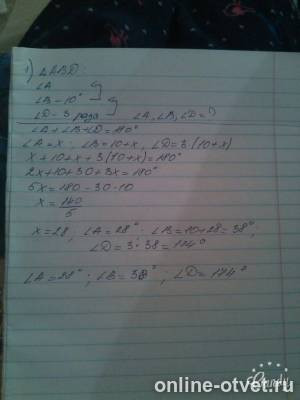 1) △ABD:
∠A
∠B - 10°
∠D - 3 раза ∠A, ∠B, ∠D = ?
∠A + ∠B + ∠D = 180°
∠A = x; ∠B = 10 + x, ∠D = 3(10 + x)
x + 10 + x + 3(10 + x) = 180°
2x + 10 + 30 + 3x = 180°
5x = 180 - 30 - 10
x = 140/5
x = 28, ∠A = 28°; ∠B = 10 + 28 = 38°;
∠D = 3 · 38 = 114°
∠A = 28°; ∠B = 38°; ∠D = 114°
Candy
online-otvet.ru